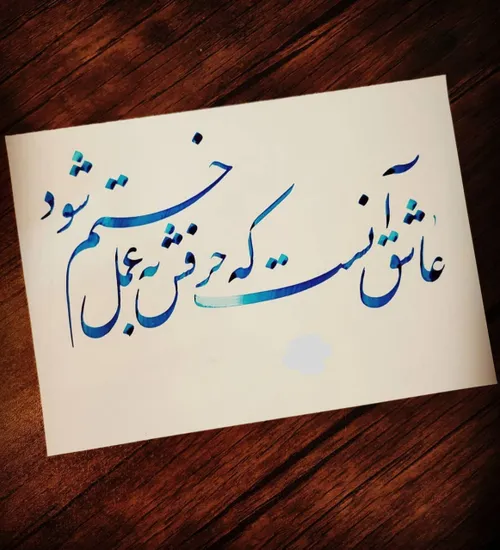 عاشق آنست که حرفش به عمل ختم شود